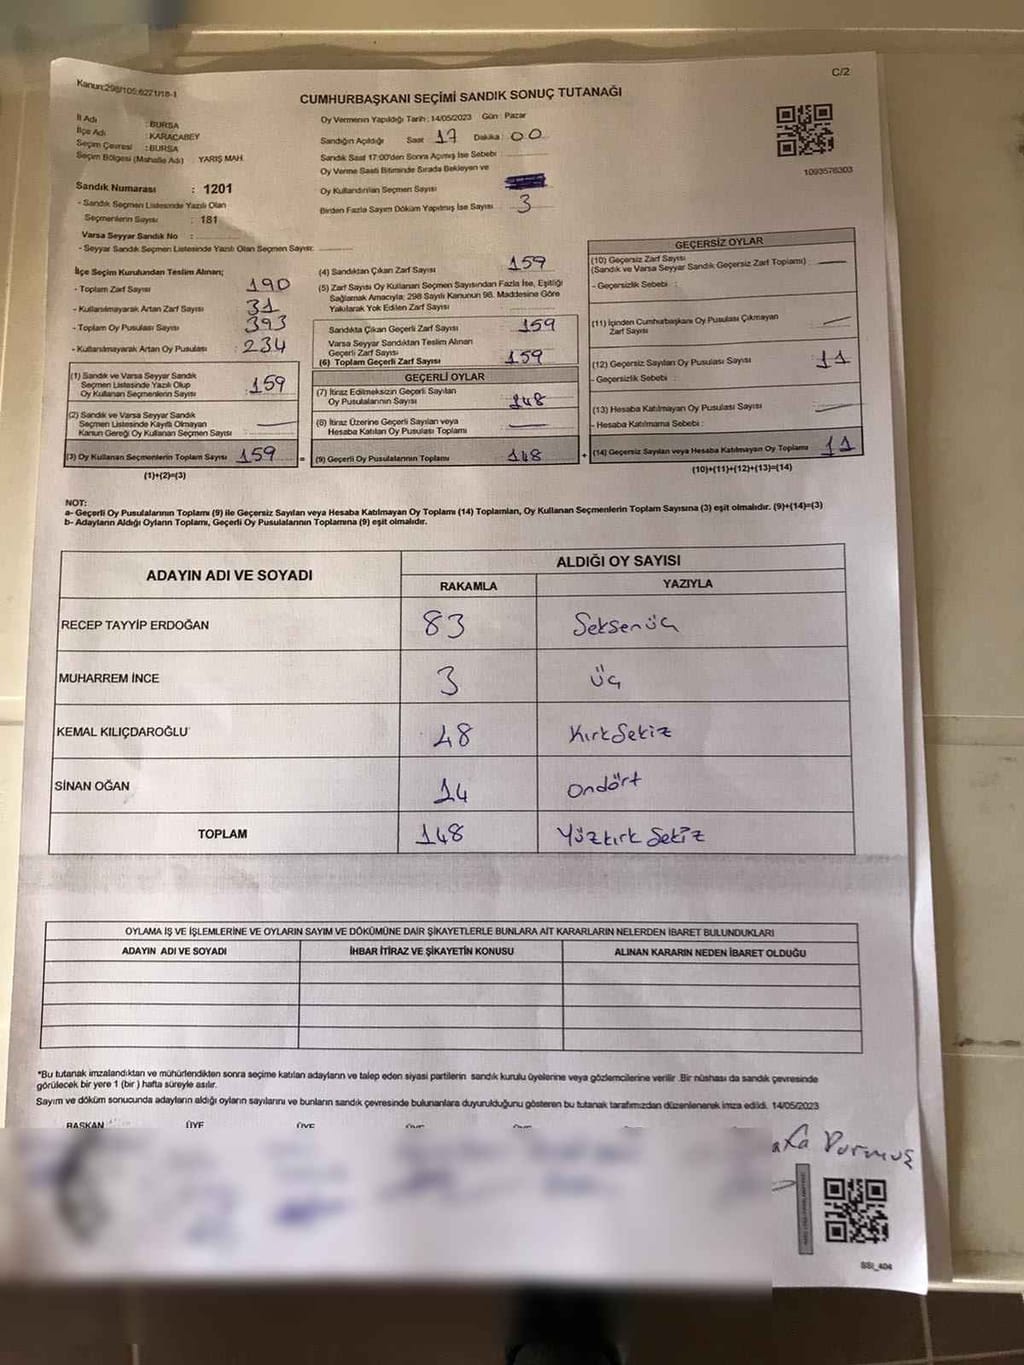 Kanun:298/105:6271/18-1
C/2
CUMHURBAŞKANI SEÇİMİ SANDIK SONUÇ TUTANAĞI
İl Adı : BURSA
İlçe Adı : KARACABEY
Seçim Çevresi : BURSA
Seçim Bölgesi (Mahalle Adı) YARIŞ MAH.
Sandık Numarası : 1201
- Sandık Seçmen Listesinde Yazılı Olan
Seçmenlerin Sayısı : 181
Varsa Seyyar Sandık No :
- Seyyar Sandık Seçmen Listesinde Yazılı Olan Seçmen Sayısı:
Oy Vermenin Yapıldığı Tarih : 14/05/2023 Gün : Pazar
Sandığın Açıldığı Saat 17 Dakika : 00
Sandık Saat 17:00'den Sonra Açımış İse Sebebi :
Oy Verme Saati Bitiminde Sırada Bekleyen ve
Oy Kullandırılan Seçmen Sayısı
Birden Fazla Sayım Döküm Yapılmış İse Sayısı 3
1093576303
İlçe Seçim Kurulundan Teslim Alınan;
- Toplam Zarf Sayısı : 190
- Kullanılmayarak Artan Zarf Sayısı : 31
- Toplam Oy Pusulası Sayısı : 393
- Kullanılmayarak Artan Oy Pusulası : 234
(1) Sandık ve Varsa Seyyar Sandık
Seçmen Listesinde Yazılı Olup
Oy Kullanan Seçmenlerin Sayısı : 159
(2) Sandık ve Varsa Seyyar Sandık
Seçmen Listesinde Kayıtlı Olmayan
Kanun Gereği Oy Kullanan Seçmen Sayısı :
(3) Oy Kullanan Seçmenlerin Toplam Sayısı : 159
(1)+(2)=(3)
(4) Sandıktan Çıkan Zarf Sayısı : 159
(5) Zarf Sayısı Oy Kullanan Seçmen Sayısından Fazla İse, Eşitliği
Sağlamak Amacıyla; 298 Sayılı Kanunun 98. Maddesine Göre
Yakılarak Yok Edilen Zarf Sayısı :
Sandıkta Çıkan Geçerli Zarf Sayısı : 159
Varsa Seyyar Sandıktan Teslim Alınan
Geçerli Zarf Sayısı :
(6) Toplam Geçerli Zarf Sayısı : 159
GEÇERLİ OYLAR
(7) İtiraz Edilmeksizin Geçerli Sayılan
Oy Pusulalarının Sayısı : 148
(8) İtiraz Üzerine Geçerli Sayılan veya
Hesaba Katılan Oy Pusulası Toplamı :
= (9) Geçerli Oy Pusulalarının Toplamı : 148
GEÇERSİZ OYLAR
(10) Geçersiz Zarf Sayısı
(Sandık ve Varsa Seyyar Sandık Geçersiz Zarf Toplamı) :
- Geçersizlik Sebebi :
(11) İçinden Cumhurbaşkanı Oy Pusulası Çıkmayan
Zarf Sayısı
(12) Geçersiz Sayılan Oy Pusulası Sayısı : 11
- Geçersizlik Sebebi :
(13) Hesaba Katılmayan Oy Pusulası Sayısı :
- Hesaba Katılmama Sebebi :
+ (14) Geçersiz Sayılan veya Hesaba Katılmayan Oy Toplamı : 11
(10)+(11)+(12)+(13)=(14)
NOT:
a- Geçerli Oy Pusulalarının Toplamı (9) ile Geçersiz Sayılan veya Hesaba Katılmayan Oy Toplamı (14) Toplamları, Oy Kullanan Seçmenlerin Toplam Sayısına (3) eşit olmalıdır. (9)+(14)=(3)
b- Adayların Aldığı Oyların Toplamı, Geçerli Oy Pusulalarının Toplamına (9) eşit olmalıdır.
ADAYIN ADI VE SOYADI ALDIĞI OY SAYISI
RAKAMLA YAZIYLA
RECEP TAYYİP ERDOĞAN 83 Seksenüç
MUHARREM İNCE 3 üç
KEMAL KILIÇDAROĞLU 48 KırkSekiz
SİNAN OĞAN 14 Ondört
TOPLAM 148 Yüzkırk Sekiz
OYLAMA İŞ VE İŞLEMLERİNE VE OYLARIN SAYIM VE DÖKÜMÜNE DAİR ŞİKAYETLERLE BUNLARA AİT KARARLARIN NELERDEN İBARET BULUNDUKLARI
ADAYIN ADI VE SOYADI İHBAR İTİRAZ VE ŞİKAYETİN KONUSU ALINAN KARARIN NEDEN İBARET OLDUĞU
*Bu tutanak imzalandıktan ve mühürlendikten sonra seçime katılan adayların ve talep eden siyasi partilerin sandık kurulu üyelerine veya gözlemcilerine verilir .Bir nüshası da sandık çevresinde
görülecek bir yere 1 (bir ) hafta süreyle asılır.
Sayım ve döküm sonucunda adayların aldığı oyların sayılarını ve bunların sandık çevresinde bulunanlara duyurulduğunu gösteren bu tutanak tarafımızdan düzenlenerek imza edildi. 14/05/2023
BAŞKAN ÜYE ÜYE
Durmuş
SSI_404